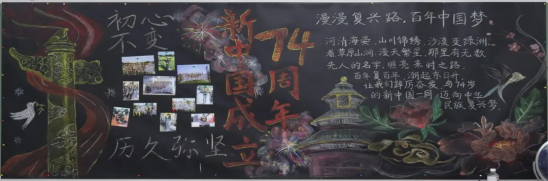 初心
不变
历久弥坚
新中国成立
74周年
漫漫复兴路，百年中国梦
河清海晏，山川锦绣，沙漠变绿洲
看草原山涧，漫天繁星，那里有无数
先人的名字，照亮来时之路。
百年复百年，潮起东日升，
让我们踔厉奋发，与74岁
的新中国一同，迈向中华
民族复兴梦。